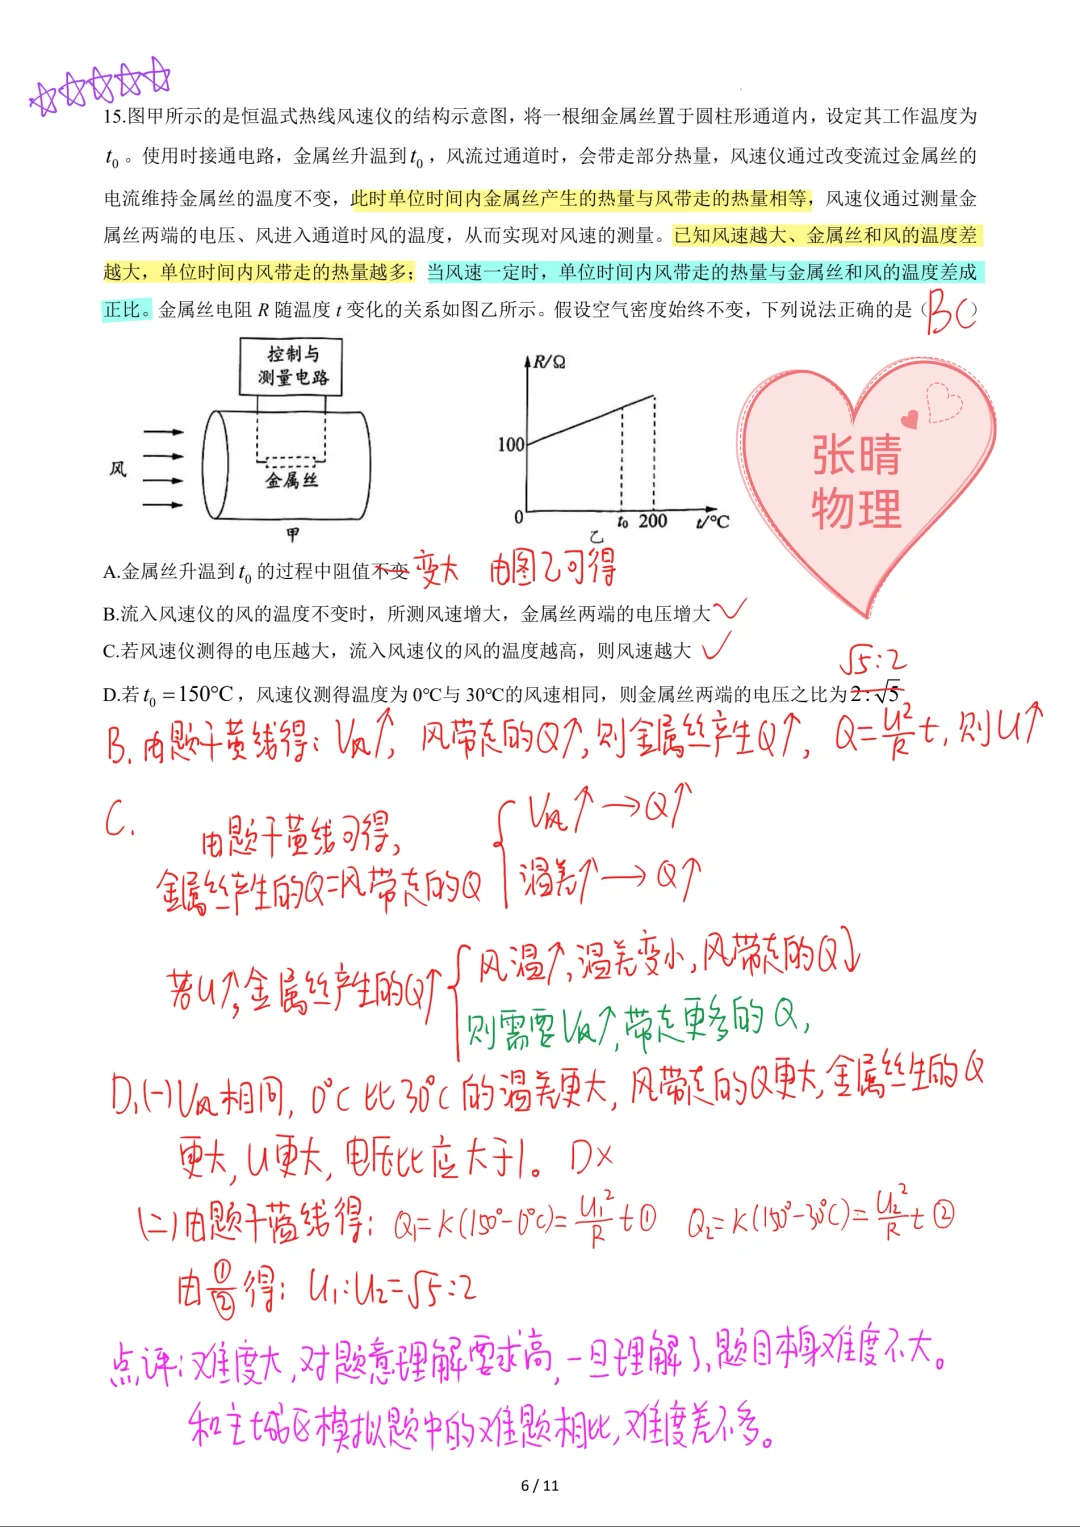 15.图甲所示的是恒温式热线风速仪的结构示意图，将一根细金属丝置于圆柱形通道内，设定其工作温度为
t₀。使用时接通电路，金属丝升温到t₀，风流过通道时，会带走部分热量，风速仪通过改变流过金属丝的
电流维持金属丝的温度不变，此时单位时间内金属丝产生的热量与风带走的热量相等，风速仪通过测量金
属丝两端的电压、风进入通道时风的温度，从而实现对风速的测量。已知风速越大、金属丝和风的温度差
越大，单位时间内风带走的热量越多；当风速一定时，单位时间内风带走的热量与金属丝和风的温度差成
正比。金属丝电阻 R 随温度 t 变化的关系如图乙所示。假设空气密度始终不变，下列说法正确的是（BC）
控制与
测量电路
风
金属丝
甲
R/Ω
100
0
t₀ 200 t/℃
乙
张晴
物理
A.金属丝升温到t₀的过程中阻值不变 变大 由图乙可得
B.流入风速仪的风的温度不变时，所测风速增大，金属丝两端的电压增大 ✓
C.若风速仪测得的电压越大，流入风速仪的风的温度越高，则风速越大 ✓
√5:2
D.若t₀=150℃，风速仪测得温度为 0℃与 30℃的风速相同，则金属丝两端的电压之比为 2:√5
B. 由题干黄线得：V风↑，风带走的Q↑，则金属丝产生Q↑，Q=U²/R t，则U↑
C.
由题干黄线可得，
金属丝产生的Q=风带走的Q
V风↑→Q↑
温差↑→Q↑
若U↑，金属丝产生的Q↑
风温↑，温差变小，风带走的Q↓
则需要V风↑，带走更多的Q，
D.(一)V风相同，0℃比30℃的温差更大，风带走的Q更大，金属丝生的Q
更大，U更大，电压比应大于1。D×
(二)由题干蓝线得：Q₁=K(150°-0℃)=U₁²/R t① Q₂=K(150°-30℃)=U₂²/R t②
由①/②得：U₁:U₂=√5:2
点评：难度大，对题意理解要求高，一旦理解了，题目本身难度不大。
和主城区模拟题中的难题相比，难度差不多。
6 / 11